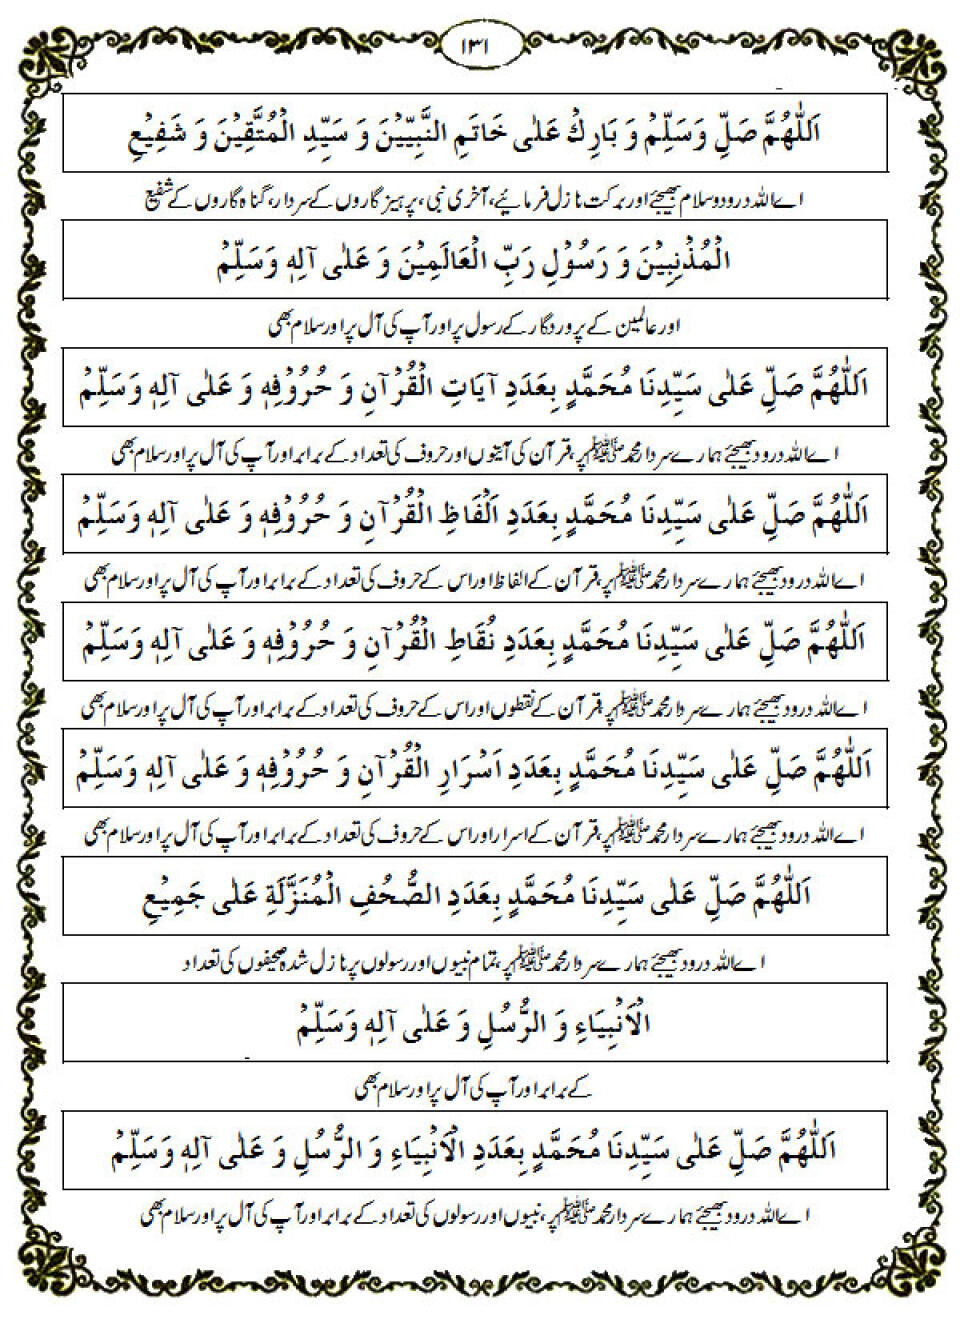 ۱۳۱
اَللّٰهُمَّ صَلِّ وَسَلِّمْ وَ بَارِكْ عَلٰى خَاتَمِ النَّبِيِّيْنَ وَ سَيِّدِ الْمُتَّقِيْنَ وَ شَفِيْعِ
اے اللہ درود و سلام بھیجئے اور برکت نازل فرمائیے، آخری نبی، پرہیزگاروں کے سردار، گناہ گاروں کے شفیع
الْمُذْنِبِيْنَ وَ رَسُوْلِ رَبِّ الْعَالَمِيْنَ وَ عَلٰى آلِهٖ وَسَلِّمْ
اور عالمین کے پروردگار کے رسول پر اور آپ کی آل پر اور سلام بھی
اَللّٰهُمَّ صَلِّ عَلٰى سَيِّدِنَا مُحَمَّدٍ بِعَدَدِ آيَاتِ الْقُرْآنِ وَ حُرُوْفِهٖ وَ عَلٰى آلِهٖ وَسَلِّمْ
اے اللہ درود بھیجئے ہمارے سردار محمد ﷺ پر، قرآن کی آیتوں اور حروف کی تعداد کے برابر اور آپ کی آل پر اور سلام بھی
اَللّٰهُمَّ صَلِّ عَلٰى سَيِّدِنَا مُحَمَّدٍ بِعَدَدِ اَلْفَاظِ الْقُرْآنِ وَ حُرُوْفِهٖ وَ عَلٰى آلِهٖ وَسَلِّمْ
اے اللہ درود بھیجئے ہمارے سردار محمد ﷺ پر، قرآن کے الفاظ اور اس کے حروف کی تعداد کے برابر اور آپ کی آل پر اور سلام بھی
اَللّٰهُمَّ صَلِّ عَلٰى سَيِّدِنَا مُحَمَّدٍ بِعَدَدِ نُقَاطِ الْقُرْآنِ وَ حُرُوْفِهٖ وَ عَلٰى آلِهٖ وَسَلِّمْ
اے اللہ درود بھیجئے ہمارے سردار محمد ﷺ پر، قرآن کے نقطوں اور اس کے حروف کی تعداد کے برابر اور آپ کی آل پر اور سلام بھی
اَللّٰهُمَّ صَلِّ عَلٰى سَيِّدِنَا مُحَمَّدٍ بِعَدَدِ اَسْرَارِ الْقُرْآنِ وَ حُرُوْفِهٖ وَ عَلٰى آلِهٖ وَسَلِّمْ
اے اللہ درود بھیجئے ہمارے سردار محمد ﷺ پر، قرآن کے اسرار اور اس کے حروف کی تعداد کے برابر اور آپ کی آل پر اور سلام بھی
اَللّٰهُمَّ صَلِّ عَلٰى سَيِّدِنَا مُحَمَّدٍ بِعَدَدِ الصُّحُفِ الْمُنَزَّلَةِ عَلٰى جَمِيْعِ
اے اللہ درود بھیجئے ہمارے سردار محمد ﷺ پر، تمام نبیوں اور رسولوں پر نازل شدہ صحیفوں کی تعداد
الْاَنْبِيَاءِ وَ الرُّسُلِ وَ عَلٰى آلِهٖ وَسَلِّمْ
کے برابر اور آپ کی آل پر اور سلام بھی
اَللّٰهُمَّ صَلِّ عَلٰى سَيِّدِنَا مُحَمَّدٍ بِعَدَدِ الْاَنْبِيَاءِ وَ الرُّسُلِ وَ عَلٰى آلِهٖ وَسَلِّمْ
اے اللہ درود بھیجئے ہمارے سردار محمد ﷺ پر، نبیوں اور رسولوں کی تعداد کے برابر اور آپ کی آل پر اور سلام بھی